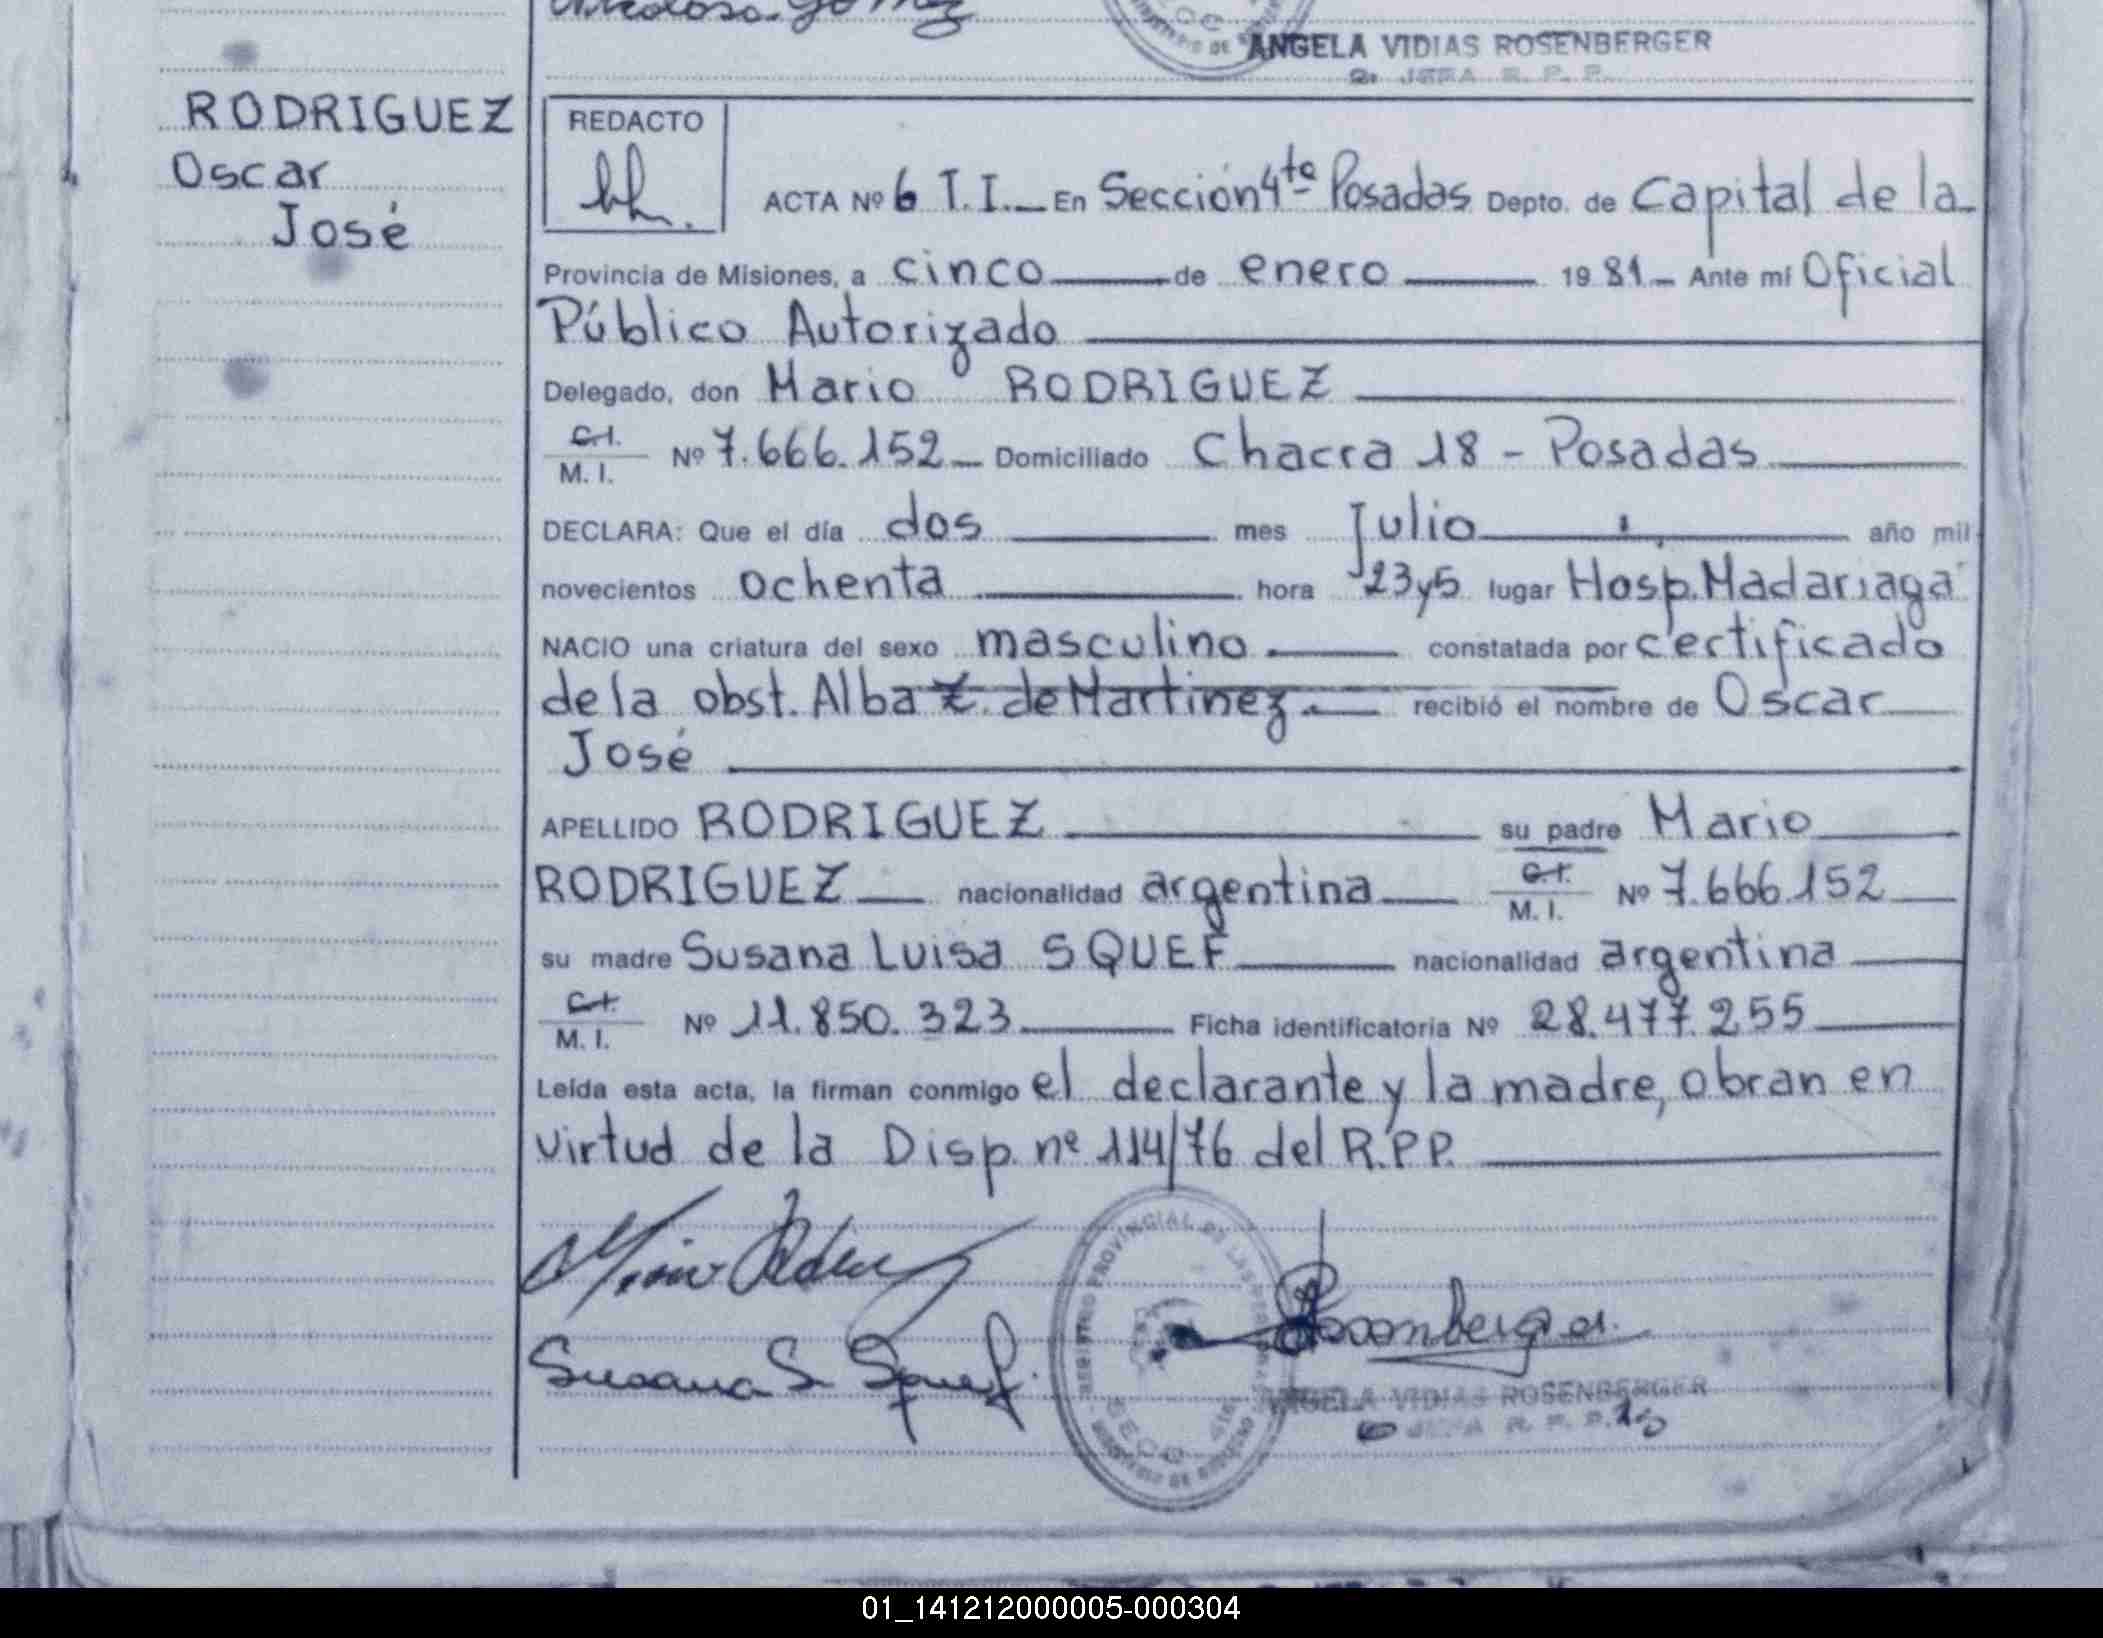 Gómez
ANGELA VIDIAS ROSENBERGER
JEFA R. P. P.
RODRIGUEZ
Oscar
José
REDACTO
ACTA Nº 6 T.I. En Sección 4ta Posadas Depto. de Capital de la
Provincia de Misiones, a cinco de enero 1981 Ante mí Oficial
Público Autorizado
Delegado, don Mario RODRIGUEZ
C.I.
M. I. Nº 7.666.152 Domiciliado Chacra 18 - Posadas
DECLARA: Que el día dos mes Julio año mil
novecientos ochenta hora 23y5 lugar Hosp. Madariaga
NACIO una criatura del sexo masculino constatada por certificado
de la obst. Alba Z. de Martinez recibió el nombre de Oscar
José
APELLIDO RODRIGUEZ su padre Mario
RODRIGUEZ nacionalidad argentina C.I. M. I. Nº 7.666.152
su madre Susana Luisa SQUEF nacionalidad argentina
C.I.
M. I. Nº 11.850.323 Ficha identificatoria Nº 28.477.255
Leída esta acta, la firman conmigo el declarante y la madre, obran en
virtud de la Disp. nº 114/76 del R.P.P.
REGISTRO PROVINCIAL DE LAS PERSONAS
Rosenberger
Susana S. Squef
ANGELA VIDIAS ROSENBERGER
JEFA R. P. P.
01_141212000005-000304